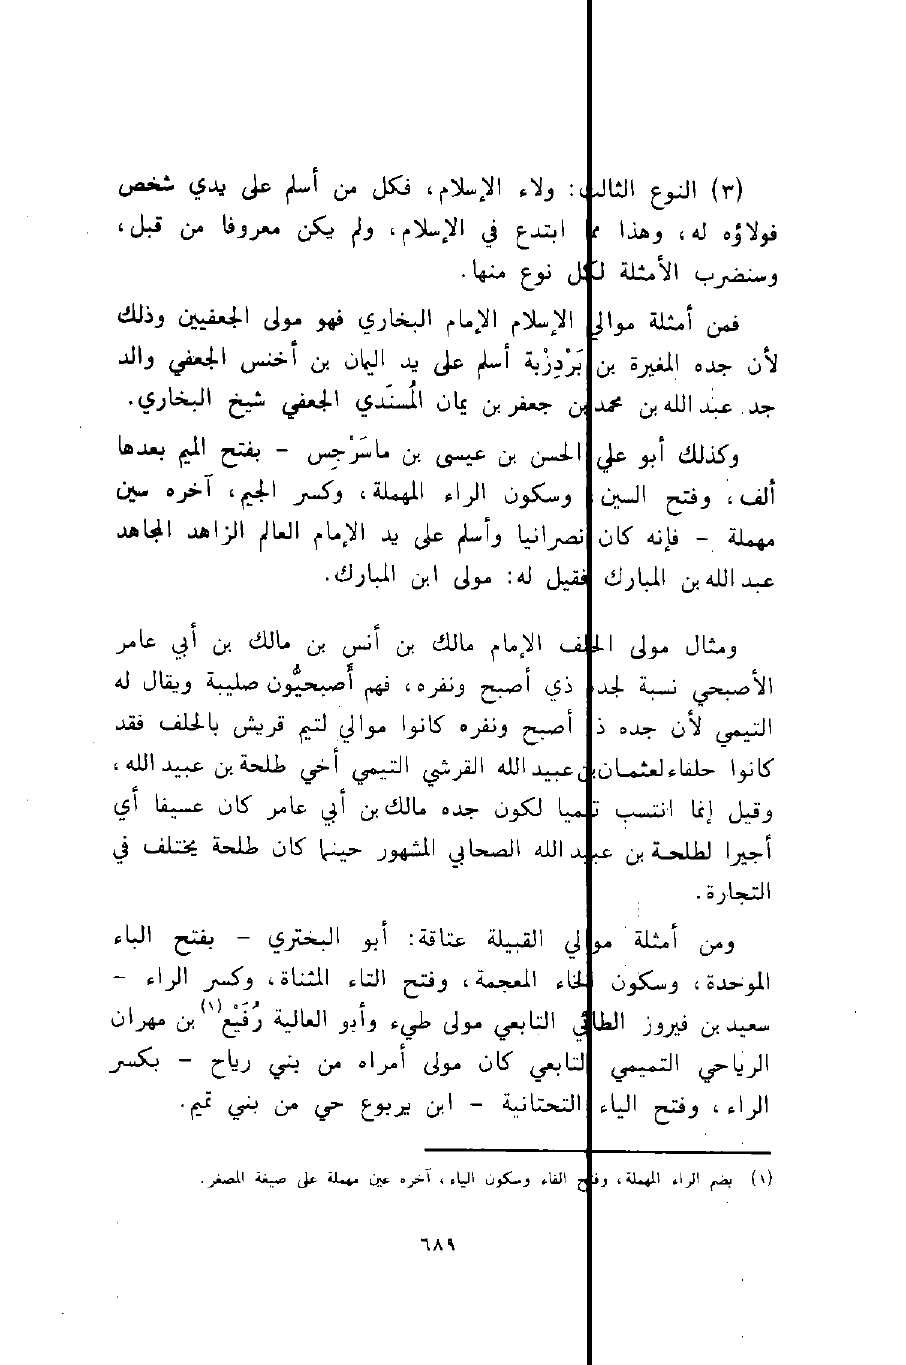 (٣) النوع الثالث: ولاء الإسلام، فكل من أسلم على يدي شخص
فولاؤه له، وهذا مما ابتدع في الإسلام، ولم يكن معروفا من قبل،
وسنضرب الأمثلة لكل نوع منها.
فمن أمثلة موالي الإسلام الإمام البخاري فهو مولى الجعفيين وذلك
لأن جده المغيرة بن بَرْدِزْبة أسلم على يد اليمان بن أخنس الجعفي والد
جد عبد الله بن محمد بن جعفر بن يمان المُسنَدي الجعفي شيخ البخاري.
وكذلك أبو علي الحسن بن عيسى بن ماسَرْجِس – بفتح الميم بعدها
ألف، وفتح السين، وسكون الراء المهملة، وكسر الجيم، آخره سين
مهملة – فإنه كان نصرانيا وأسلم على يد الإمام العالم الزاهد المجاهد
عبد الله بن المبارك فقيل له: مولى ابن المبارك.
ومثال مولى الحلف الإمام مالك بن أنس بن مالك بن أبي عامر
الأصبحي نسبة لجده ذي أصبح ونفره، فهم أَصبحيُّون صليبة ويقال له
التيمي لأن جده ذا أصبح ونفره كانوا موالي لتيم قريش بالحلف فقد
كانوا حلفاء لعثمان بن عبيد الله القرشي التيمي أخي طلحة بن عبيد الله،
وقيل إنما انتسب تيميا لكون جده مالك بن أبي عامر كان عسيفا أي
أجيرا لطلحة بن عبيد الله الصحابي المشهور حينما كان طلحة يختلف في
التجارة.
ومن أمثلة موالي القبيلة عتاقة: أبو البختري – بفتح الباء
الموحدة، وسكون الخاء المعجمة، وفتح التاء المثناة، وكسر الراء –
سعيد بن فيروز الطائي التابعي مولى طيء وأبو العالية رُفَيْع(١) بن مهران
الرياحي التميمي التابعي كان مولى أمراه من بني رياح – بكسر
الراء، وفتح الياء التحتانية – ابن يربوع حي من بني تميم.
(١) بضم الراء المهملة، وفتح الفاء وسكون الياء، آخره عين مهملة على صيغة المصغر.
٦٨٩